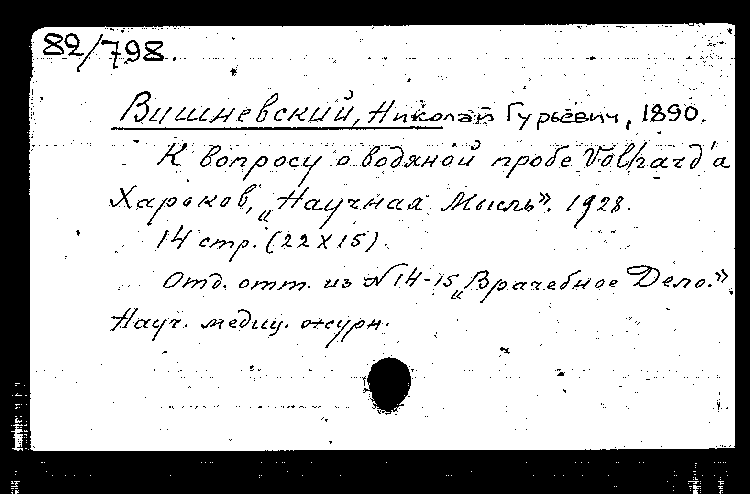 82/798.
Вишневский, Николай Гурьевич, 1890.
К вопросу о водяной пробе Volhard'a
Харьков, „Научная Мысль". 1928.
14 стр. (22x15).
Отд. отт. из N 14-15 „Врачебное Дело."
Науч. медиц. журн.